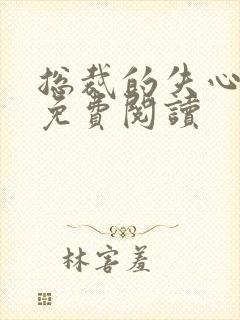 总裁的失心
免費閱讀
林害羞